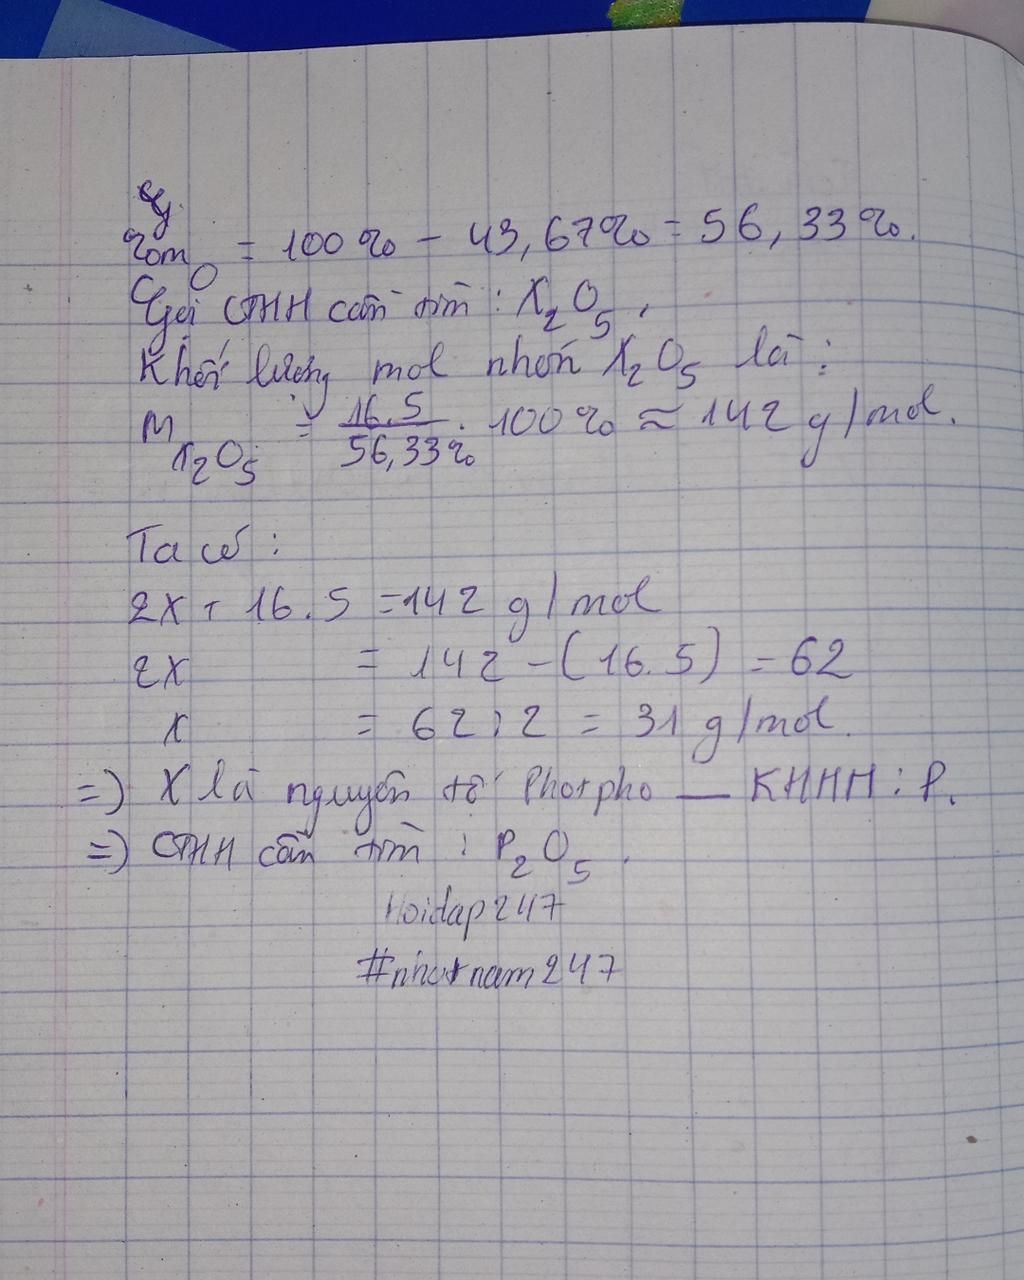 %m = 100% - 43,67% = 56,33%.
O
Gọi CTHH cần tìm : X2O5.
Khối lượng mol nhôn X2O5 là :
M X2O5 = 16.5 / 56,33% . 100% ≈ 142 g/mol.
Ta có :
2X + 16.5 = 142 g/mol
2X = 142 - (16.5) = 62
X = 62 : 2 = 31 g/mol.
=) X là nguyên tố Photpho — KHHH : P.
=) CTHH cần tìm : P2O5.
Hoidap247
#nhatnam247